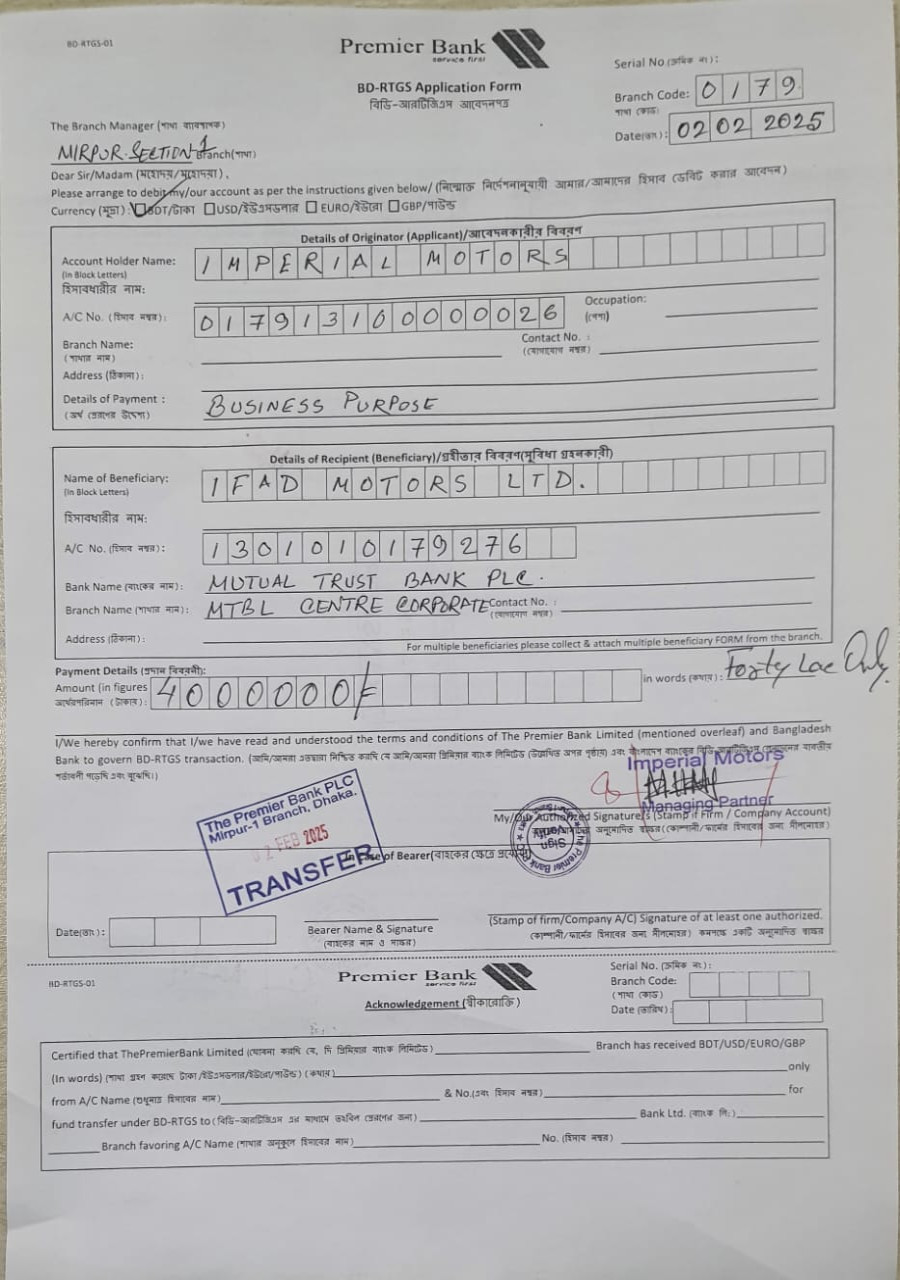 BD-RTGS-01
Premier Bank
service first
BD-RTGS Application Form
বিডি-আরটিজিএস আবেদনপত্র
Serial No.(ক্রমিক নং):
Branch Code: 0179
শাখা (কোড)
Date(তাং): 02 02 2025
The Branch Manager (শাখা ব্যবস্থাপক)
MIRPUR-SECTION-1 Branch(শাখা)
Dear Sir/Madam (মহোদয়/মহোদয়া),
Please arrange to debit my/our account as per the instructions given below/ (নিম্মোক্ত নির্দেশনানুযায়ী আমার/আমাদের হিসাব ডেবিট করার আবেদন)
Currency (মূদ্রা): BDT/টাকা USD/ইউএসডলার EURO/ইউরো GBP/পাউন্ড
Details of Originator (Applicant)/আবেদনকারীর বিবরণ
Account Holder Name: IMPERIAL MOTORS
(In Block Letters)
হিসাবধারীর নাম:
A/C No. (হিসাব নম্বর): 017913100000026
Occupation:
(পেশা)
Branch Name:
(শাখার নাম)
Contact No. :
(যোগাযোগ নম্বর)
Address (ঠিকানা):
Details of Payment : BUSINESS PURPOSE
(অর্থ প্রেরণের উদ্দেশ্য)
Details of Recipient (Beneficiary)/গ্রহীতার বিবরণ(সুবিধা গ্রহনকারী)
Name of Beneficiary: IFAD MOTORS LTD.
(In Block Letters)
হিসাবধারীর নাম:
A/C No. (হিসাব নম্বর): 1301010179276
Bank Name (ব্যাংকের নাম): MUTUAL TRUST BANK PLC.
Branch Name (শাখার নাম): MTBL CENTRE CORPORATE Contact No. :
(যোগাযোগ নম্বর)
Address (ঠিকানা):
For multiple beneficiaries please collect & attach multiple beneficiary FORM from the branch.
Payment Details (প্রদান বিবরনী):
Amount (in figures 4000000/= in words (কথায়): Forty Lac Only.
অর্থেরপরিমান (টাকায়):
I/We hereby confirm that I/we have read and understood the terms and conditions of The Premier Bank Limited (mentioned overleaf) and Bangladesh
Bank to govern BD-RTGS transaction. (আমি/আমরা এতদ্বারা নিশ্চিত করছি যে আমি/আমরা প্রিমিয়ার ব্যাংক লিমিটেড (উল্লেখিত অপর পৃষ্ঠায়) এবং বাংলাদেশ ব্যাংকের বিডি আরটিজিএস লেনদেনের যাবতীয়
শর্তাবলী পড়েছি এবং বুঝেছি।)
Imperial Motors
Managing Partner
The Premier Bank PLC
Mirpur-1 Branch, Dhaka.
02 FEB 2025
TRANSFER
My/Our Authorized Signature/s (Stamp if Firm / Company Account)
In case of Bearer(বাহকের ক্ষেত্রে প্রযোজ্য)
Date(তাং):
Bearer Name & Signature
(বাহকের নাম ও স্বাক্ষর)
(Stamp of firm/Company A/C) Signature of at least one authorized.
(কোম্পানী/ফার্মের হিসাবের জন্য সীলমোহর) কমপক্ষে একটি অনুমোদিত স্বাক্ষর
BD-RTGS-01
Premier Bank
service first
Acknowledgement (স্বীকারোক্তি)
Serial No. (ক্রমিক নং):
Branch Code:
(শাখা কোড)
Date (তারিখ):
Certified that ThePremierBank Limited (ঘোষনা করছি যে, দি প্রিমিয়ার ব্যাংক লিমিটেড) Branch has received BDT/USD/EURO/GBP
(In words) (শাখা গ্রহন করেছে টাকা /ইউএসডলার/ইউরো/পাউন্ড) (কথায়) only
from A/C Name (শুধুমাত্র হিসাবের নাম) & No.(এবং হিসাব নম্বর) for
fund transfer under BD-RTGS to (বিডি-আরটিজিএস এর মাধ্যমে তহবিল প্রেরণের জন্য) Bank Ltd. (ব্যাংক লি:)
Branch favoring A/C Name (শাখার অনুকূলে হিসাবের নাম) No. (হিসাব নম্বর)